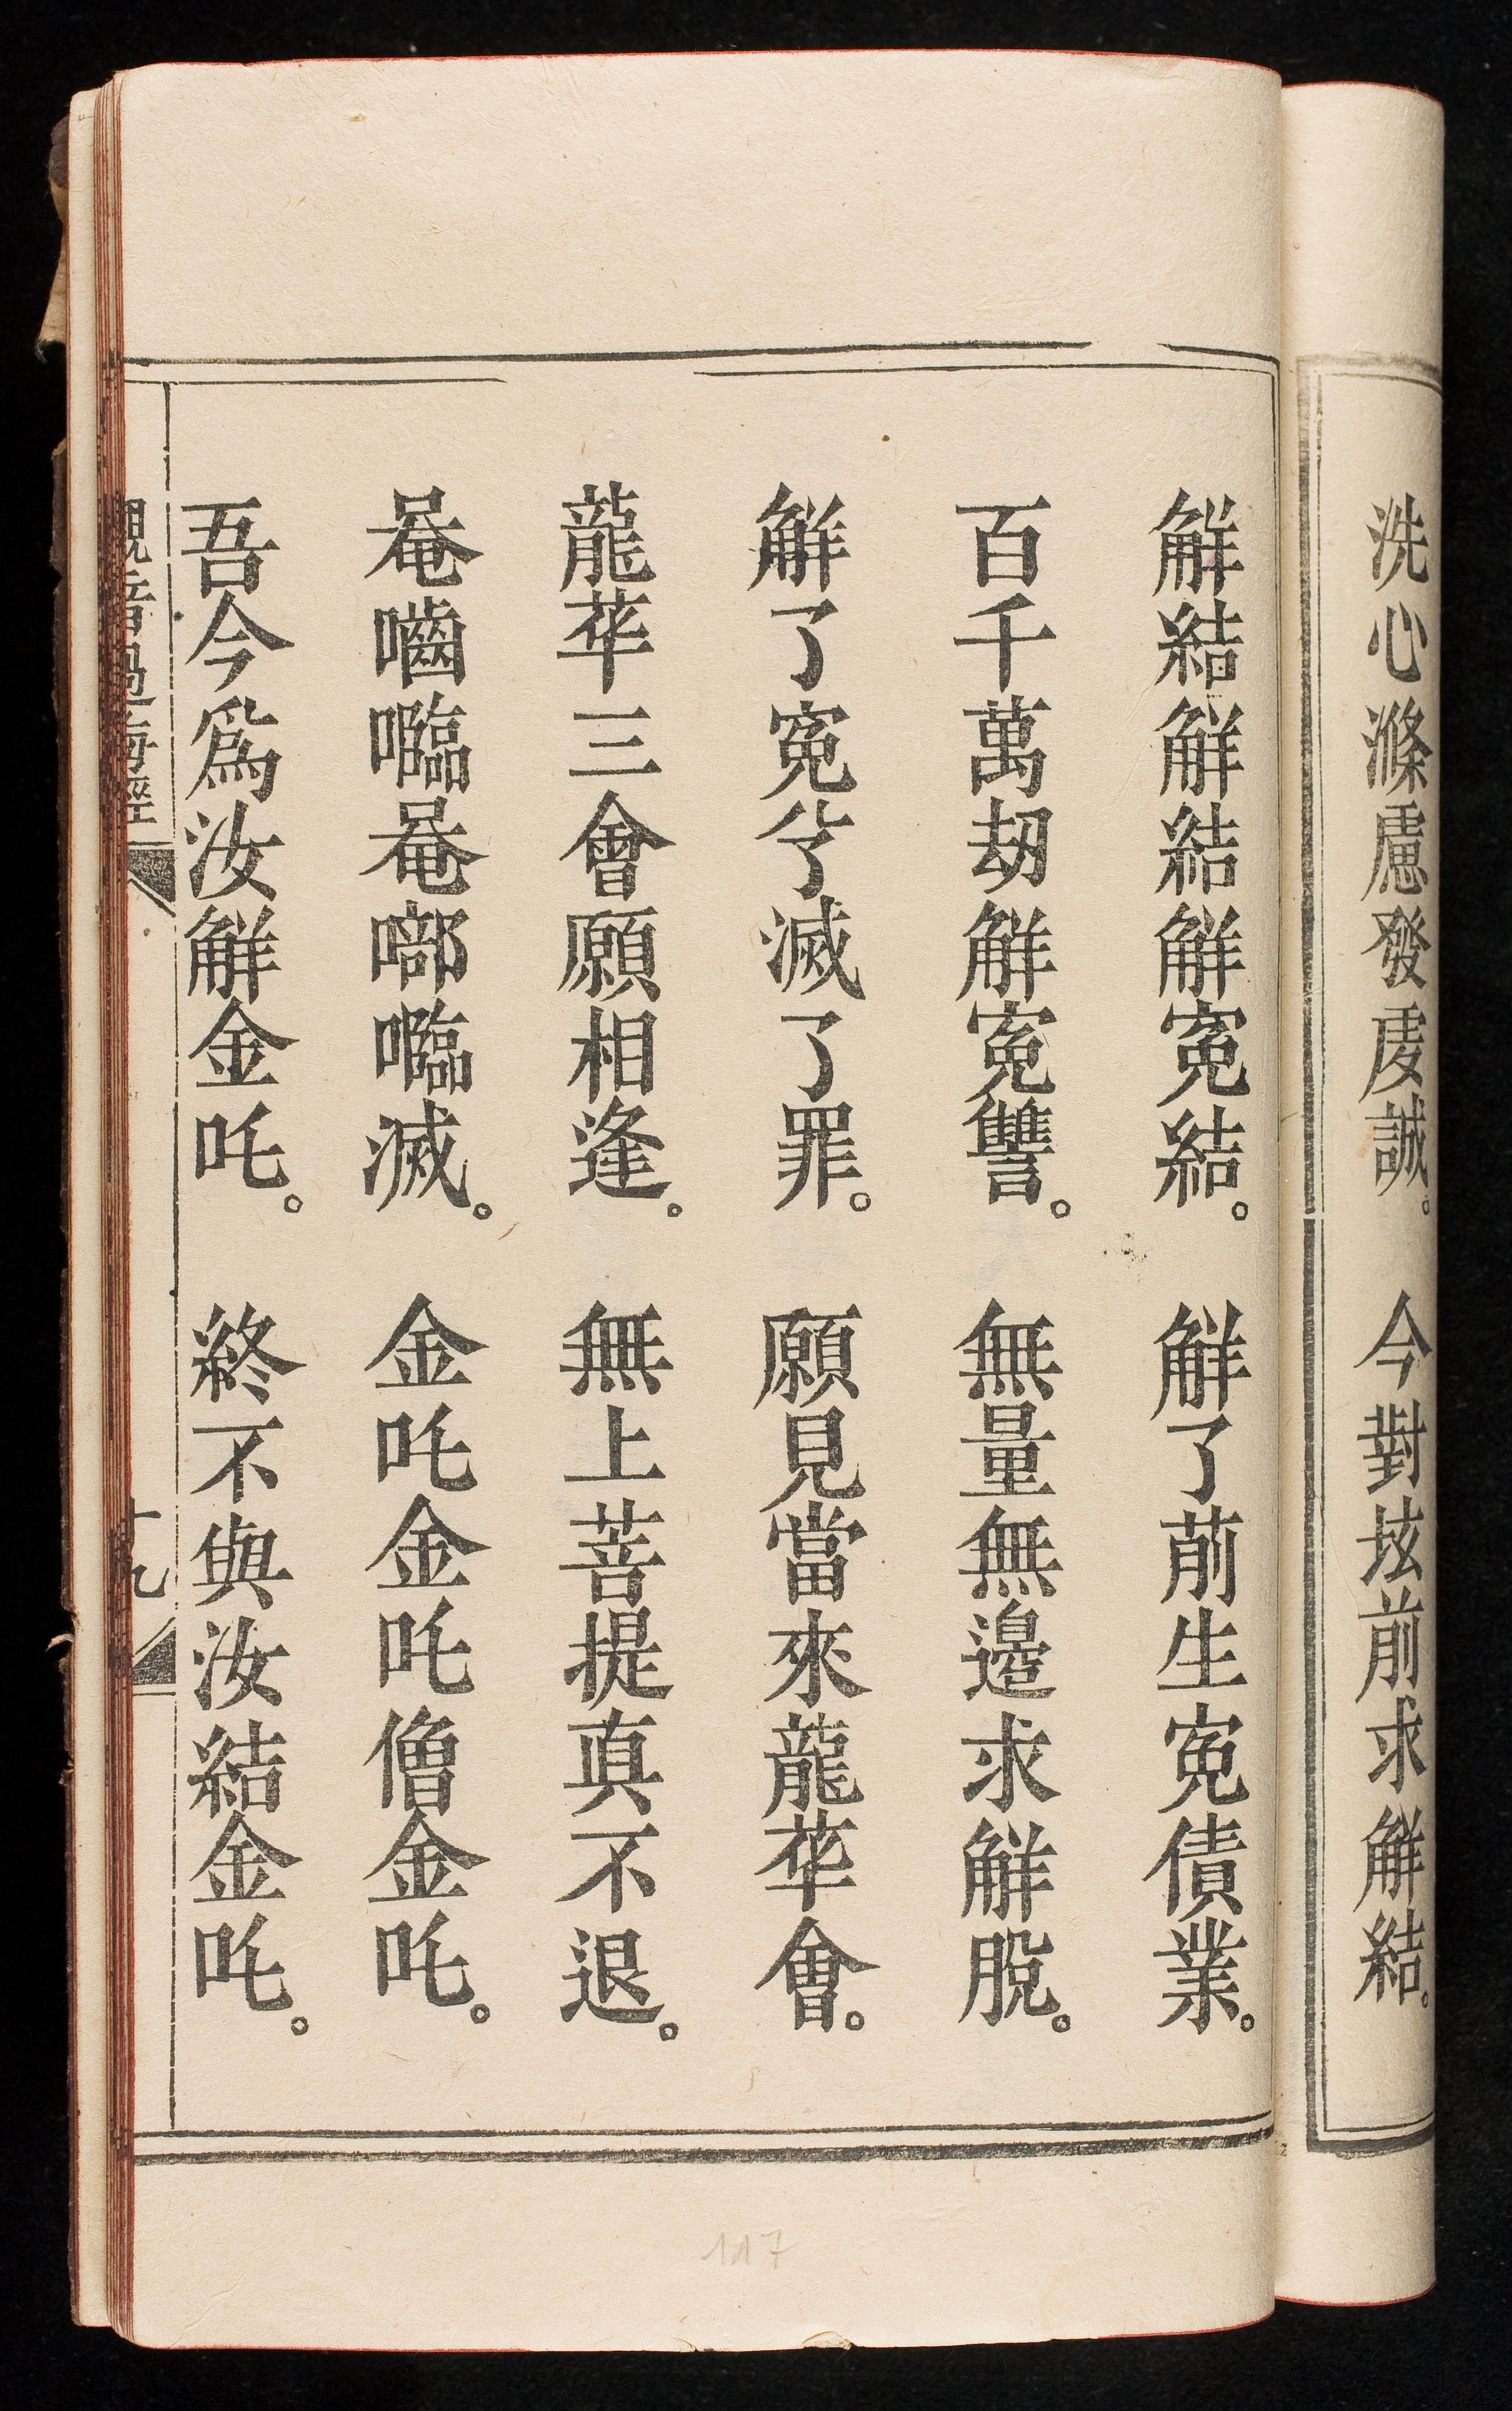 洗心滌慮發虔誠。今對垓前求解結。
解結解結解寃結。解了前生寃債業。
百千萬劫解寃讐。無量無邊求解脫。
解了寃兮滅了罪。願見當來龍華會。
龍華三會願相逢。無上菩提真不退。
唵嚙囖唵啷囖滅。金吒金吒僧金吒。
吾今爲汝解金吒。終不與汝結金吒。
觀音過海經
十九
117